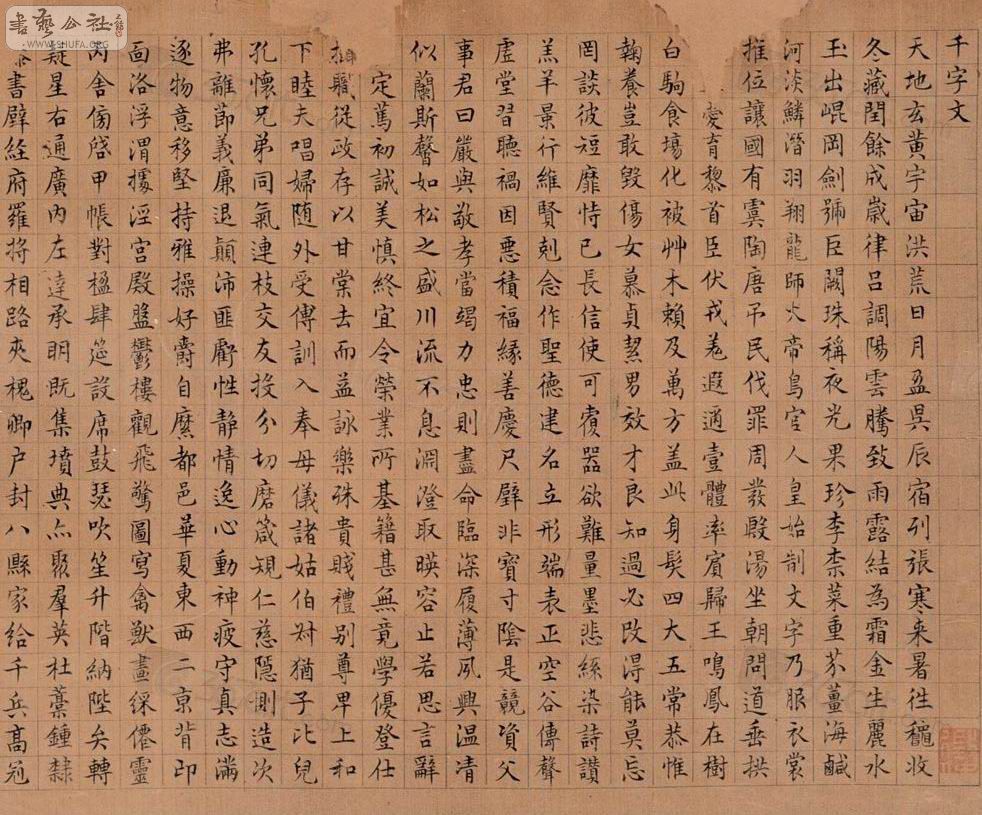 書藝公社
WWW.SHUFA.ORG
千字文
天地玄黄宇宙洪荒日月盈昃辰宿列張寒来暑往穐收
冬藏閏餘成歲律吕調陽雲騰致雨露結為霜金生麗水
玉出崐岡劍號巨闕珠稱夜光果珍李柰菜重芥薑海鹹
河淡鱗潛羽翔龍師火帝鳥官人皇始制文字乃服衣裳
推位讓國有虞陶唐弔民伐罪周發殷湯坐朝問道垂拱
愛育黎首臣伏戎羌遐邇壹體率賓歸王鳴鳳在樹
白駒食場化被艸木賴及萬方盖此身髮四大五常恭惟
鞠養豈敢毀傷女慕貞潔男效才良知過必改得能莫忘
罔談彼短靡恃己長信使可覆器欲難量墨悲絲染詩讚
羔羊景行維賢剋念作聖德建名立形端表正空谷傳聲
虚堂習聽禍因惡積福緣善慶尺璧非寶寸陰是競資父
事君曰嚴與敬孝當竭力忠則盡命臨深履薄夙興温凊
似蘭斯馨如松之盛川流不息淵澄取暎容止若思言辭
定篤初誠美慎終宜令榮業所基籍甚無竟學優登仕
職從政存以甘棠去而益詠樂殊貴賤禮别尊卑上和
下睦夫唱婦随外受傅訓入奉母儀諸姑伯叔猶子比兒
孔懷兄弟同氣連枝交友投分切磨箴規仁慈隱惻造次
弗離節義廉退顛沛匪虧性静情逸心動神疲守真志滿
逐物意移堅持雅操好爵自縻都邑華夏東西二京背邙
面洛浮渭據涇宫殿盤鬱樓觀飛驚圖寫禽獸畫綵僊靈
丙舍傍啓甲帳對楹肆筵設席鼓瑟吹笙升階納陛弁轉
疑星右通廣内左達承明既集墳典亦聚羣英杜藁鍾隸
書壁経府羅將相路夾槐卿户封八縣家給千兵高冠